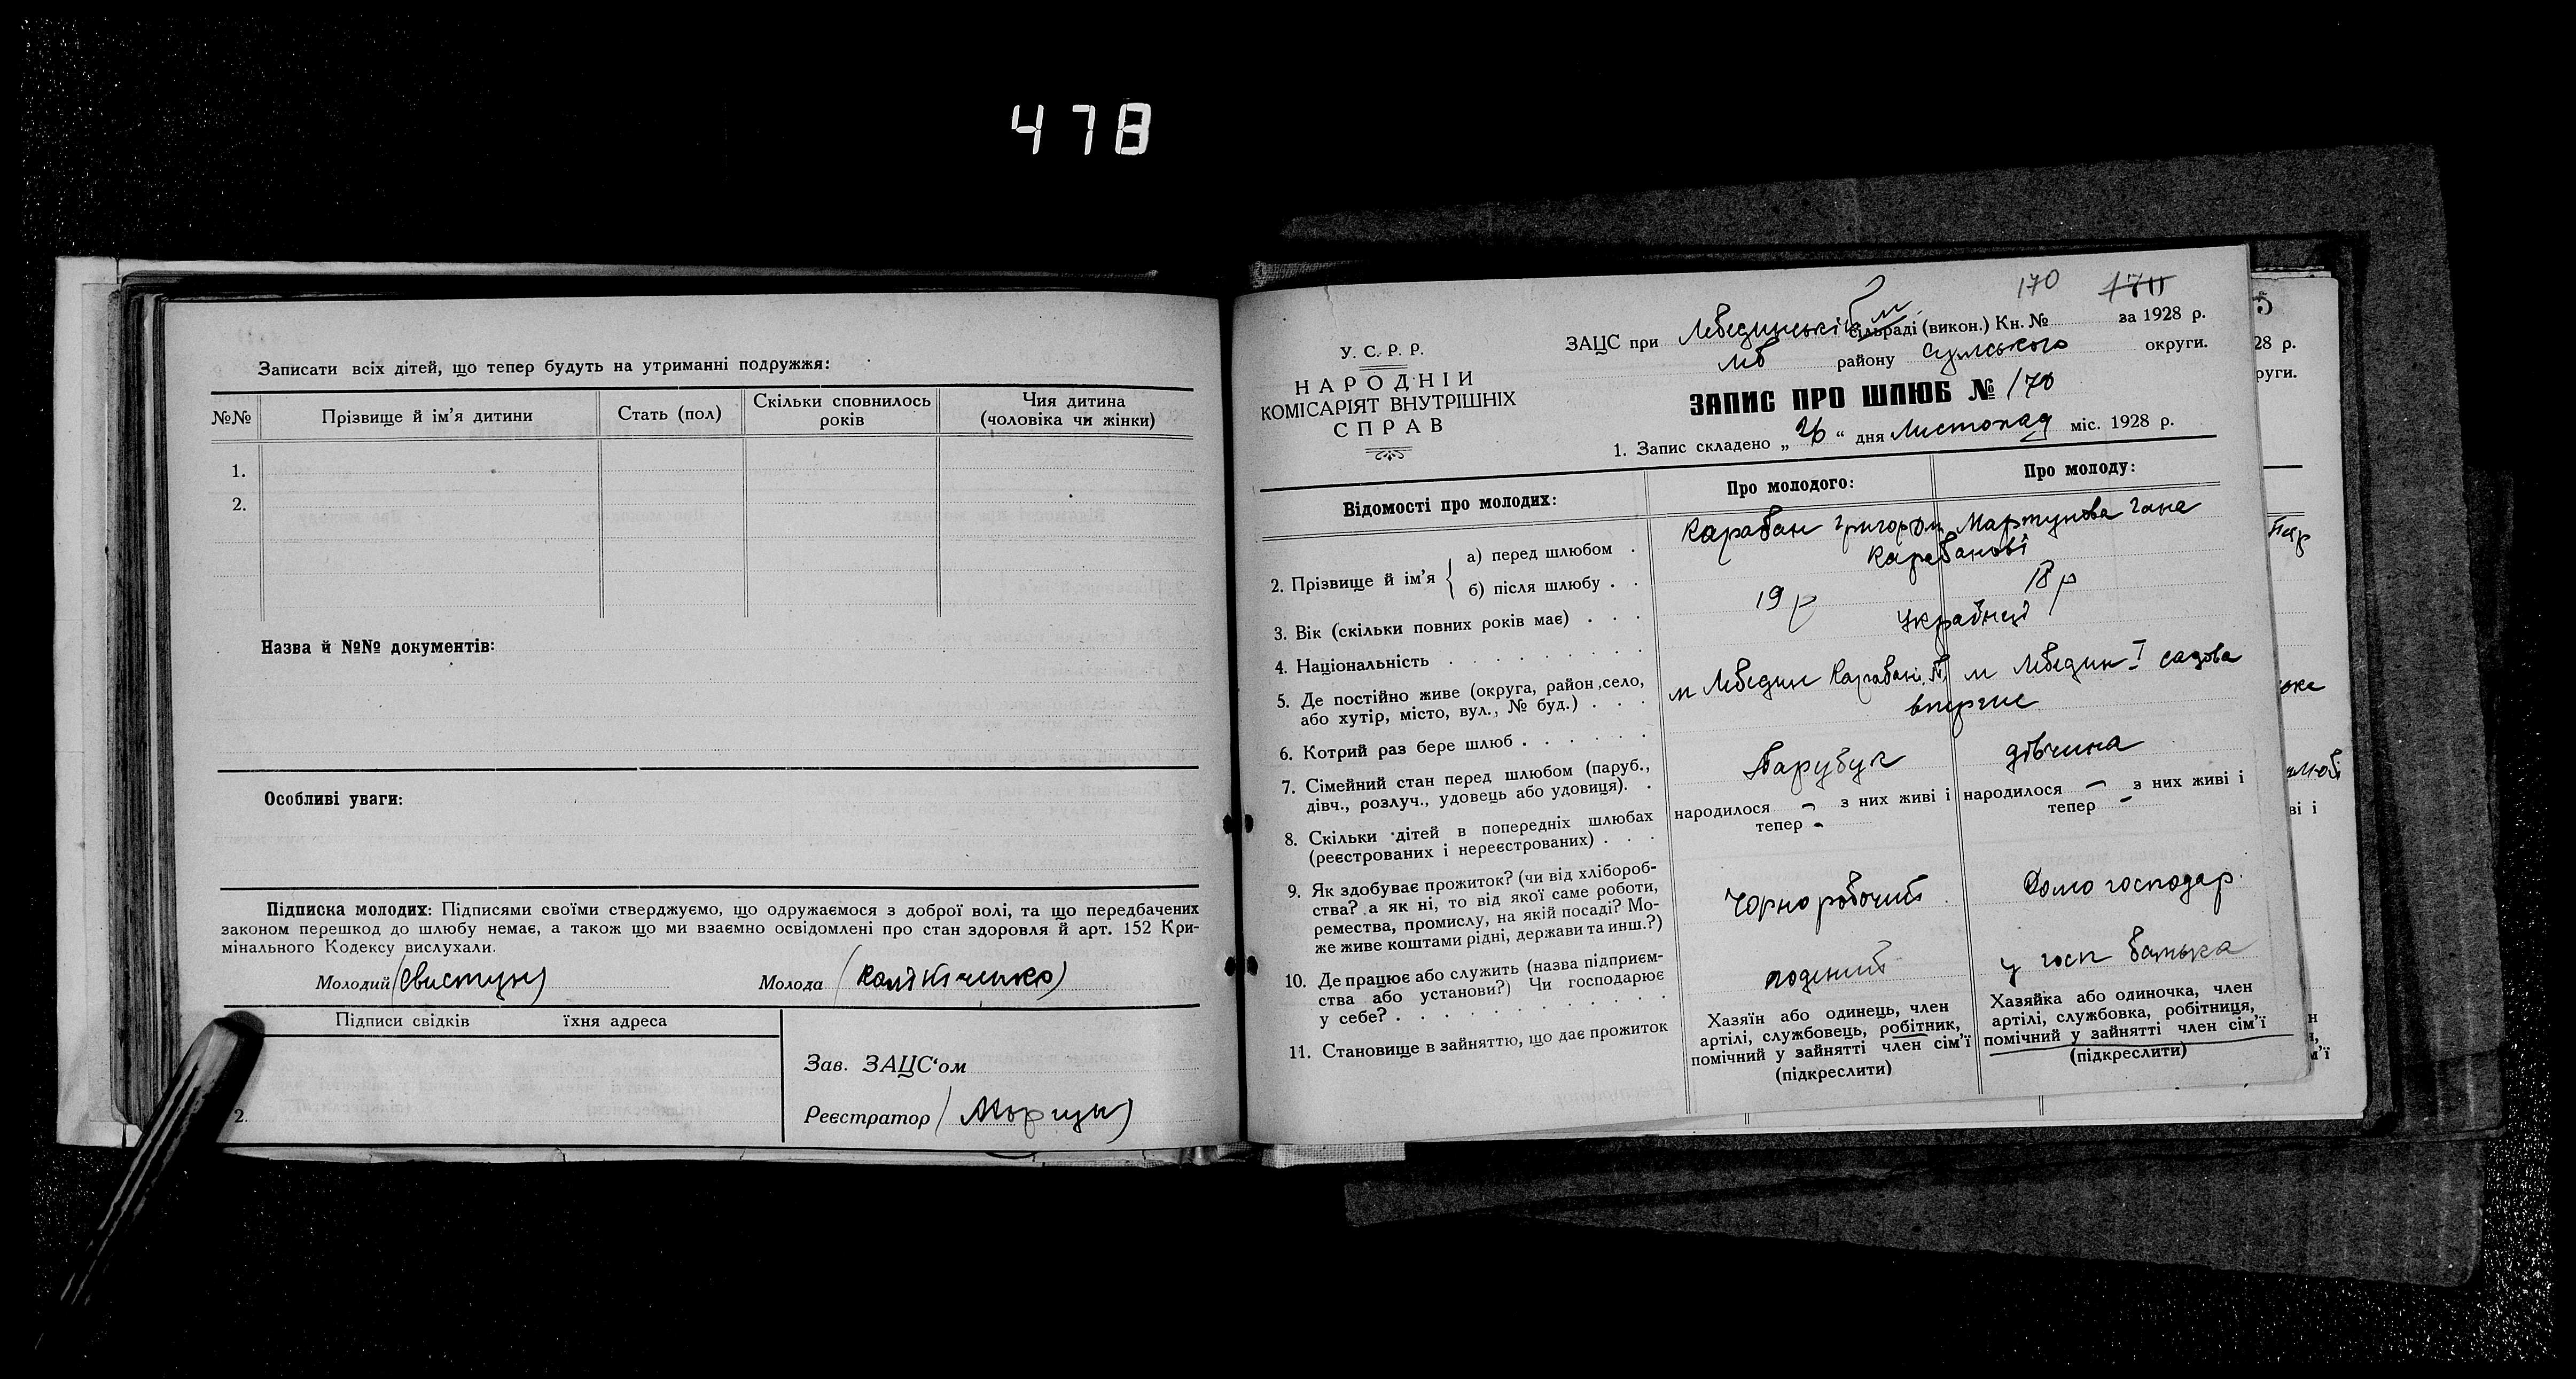 478
Записати всіх дітей, що тепер будуть на утриманні подружжя:
№№ Прізвище й ім'я дитини Стать (пол) Скільки сповнилось років Чия дитина (чоловіка чи жінки)
1.
2.
Назва й №№ документів:
Особливі уваги:
Підписка молодих: Підписями своїми стверджуємо, що одружаємося з доброї волі, та що передбачених
законом перешкод до шлюбу немає, а також що ми взаємно освідомлені про стан здоровля й арт. 152 Кри-
мінального Кодексу вислухали.
Молодий (Свистун) Молода
Підписи свідків їхня адреса
Зав. ЗАЦС'ом
2.
Реєстратор (Моргун)
У. С. Р. Р.
НАРОДНІЙ
КОМІСАРІЯТ ВНУТРІШНІХ
СПРАВ
170 170
ЗАЦС при Лебединській м сільраді (викон.) Кн. № за 1928 р.
Лб району Сумського округи.
ЗАПИС ПРО ШЛЮБ № 170
1. Запис складено „26“ дня Листопад міс. 1928 р.
Відомості про молодих: Про молодого: Про молоду:
2. Прізвище й ім'я { а) перед шлюбом . Карабан Григорій Мартунова Гана
б) після шлюбу . . Карабанові
3. Вік (скільки повних років має) . . . 19 р 18 р
4. Національність Українці
5. Де постійно живе (округа, район, село,
або хутір, місто, вул., № буд.) . . . м Лебедин м Лебедин I садова
6. Котрий раз бере шлюб . . . . . . вперше
7. Сімейний стан перед шлюбом (паруб.,
дівч., розлуч., удовець або удовиця). . Парубук дівчина
8. Скільки дітей в попередніх шлюбах
(реєстрованих і нереєстрованих) . . .
народилося — з них живі і
тепер -
народилося — з них живі і
тепер -
9. Як здобуває прожиток? (чи від хлібороб-
ства? а як ні, то від якої саме роботи,
ремества, промислу, на якій посаді? Мо-
же живе коштами рідні, держави та инш.?)
Чорноробочий Домогосподар.
10. Де працює або служить (назва підприєм-
ства або установи?) Чи господарює
у себе? . . . . . . . . . .
у госп батька
11. Становище в зайняттю, що дає прожиток
Хазяїн або одинець, член
артілі, службовець, робітник,
помічний у зайнятті член сім'ї
(підкреслити)
Хазяйка або одиночка, член
артілі, службовка, робітниця,
помічний у зайнятті член сім'ї
(підкреслити)
5
28 р.
руги.
ві і